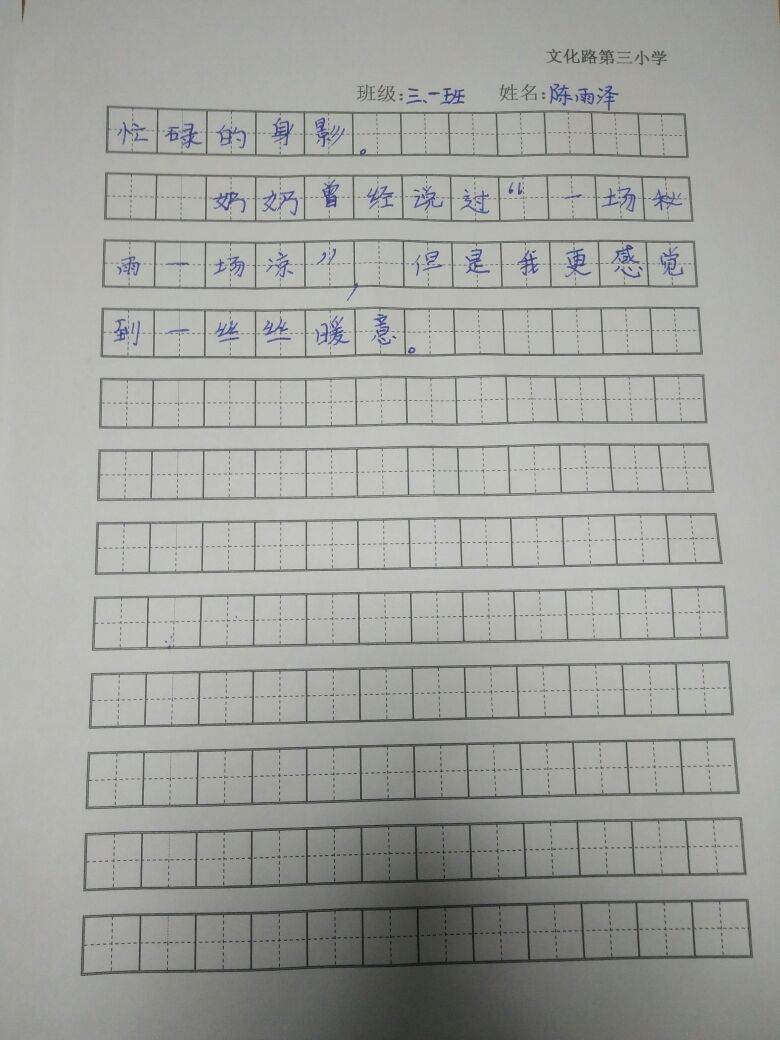 文化路第三小学
班级:三、一班 姓名:陈雨泽
忙碌的身影。
奶奶曾经说过“一场秋
雨一场凉”，但是我更感觉
到一丝丝暖意。